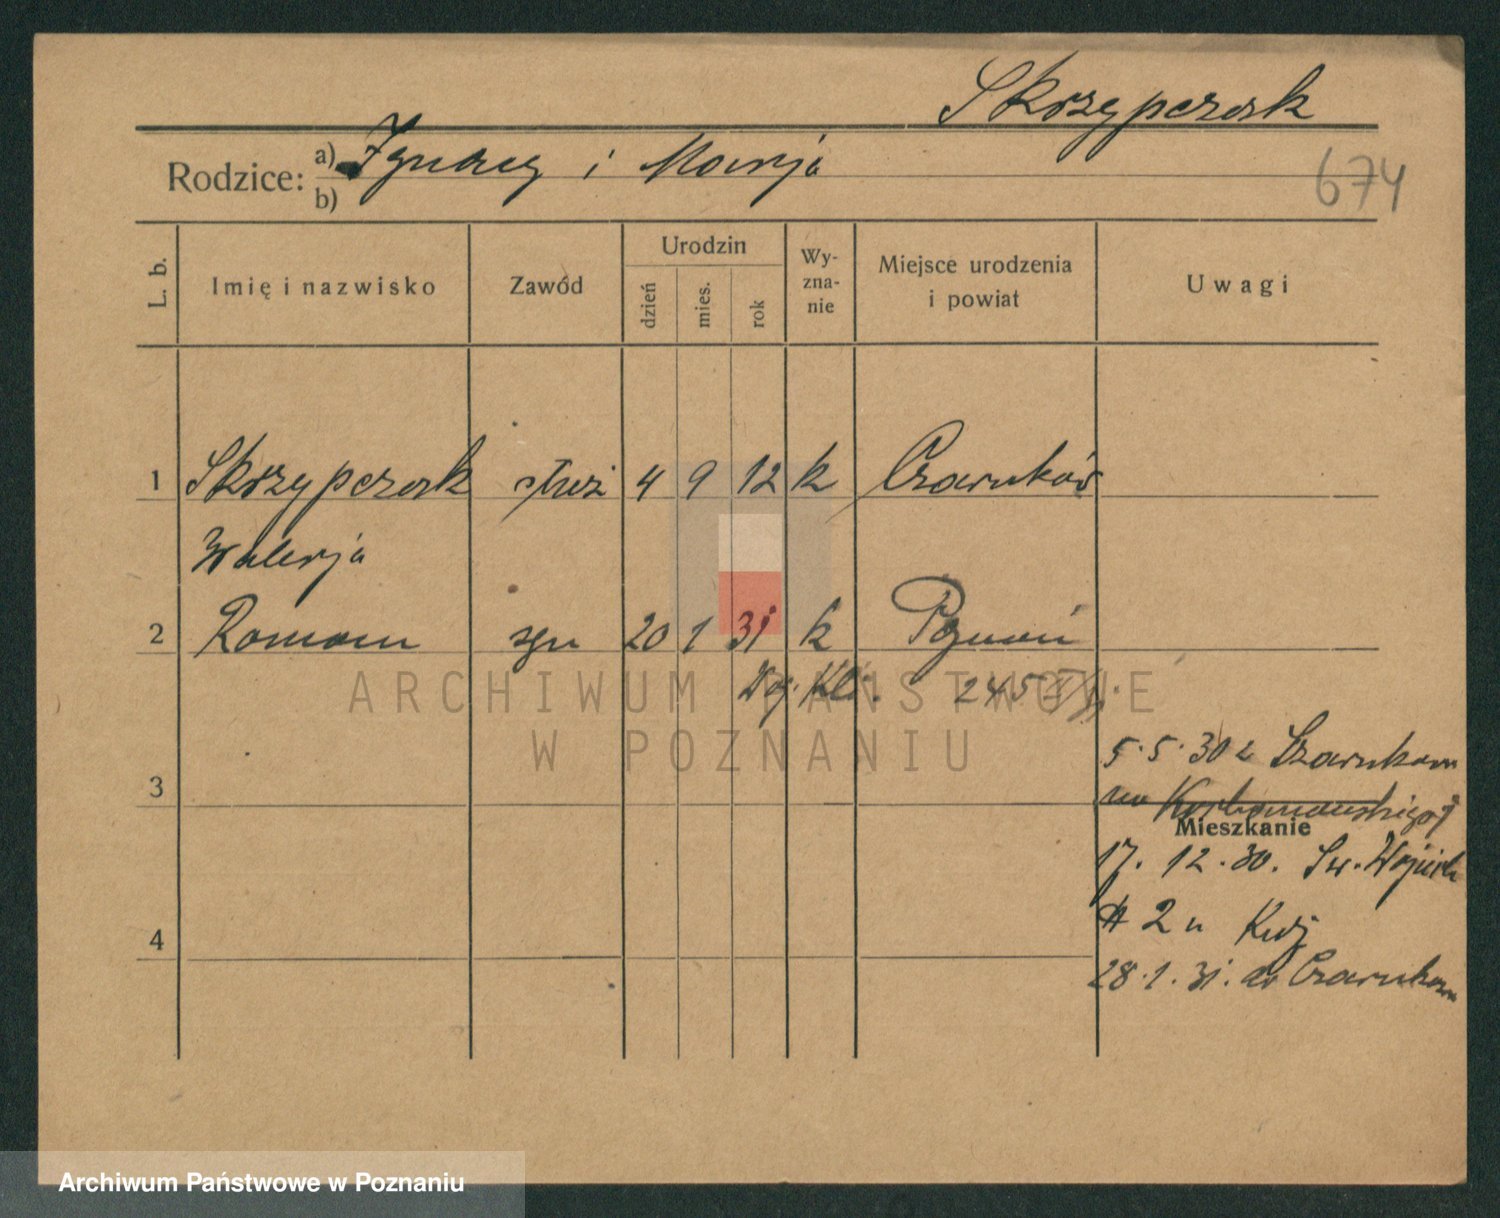 Skrzypczak
Rodzice: a) Ignacy i Marja
b)
674
L. b.
Imię i nazwisko
Zawód
Urodzin
dzień
mies.
rok
Wy-
zna-
nie
Miejsce urodzenia
i powiat
Uwagi
1 Skrzypczak służ 4 9 12 k Czarnków
Walerja
2 Roman syn 20 1 31 k Poznań
Kl. 245
ARCHIWUM PAŃSTWOWE
W POZNANIU
5.5.30 z Czarnkowa
3 na
Mieszkanie
17. 12. 30. Św. Wojciech
4 2 u
28.1.31. do Czarnkowa
Archiwum Państwowe w Poznaniu